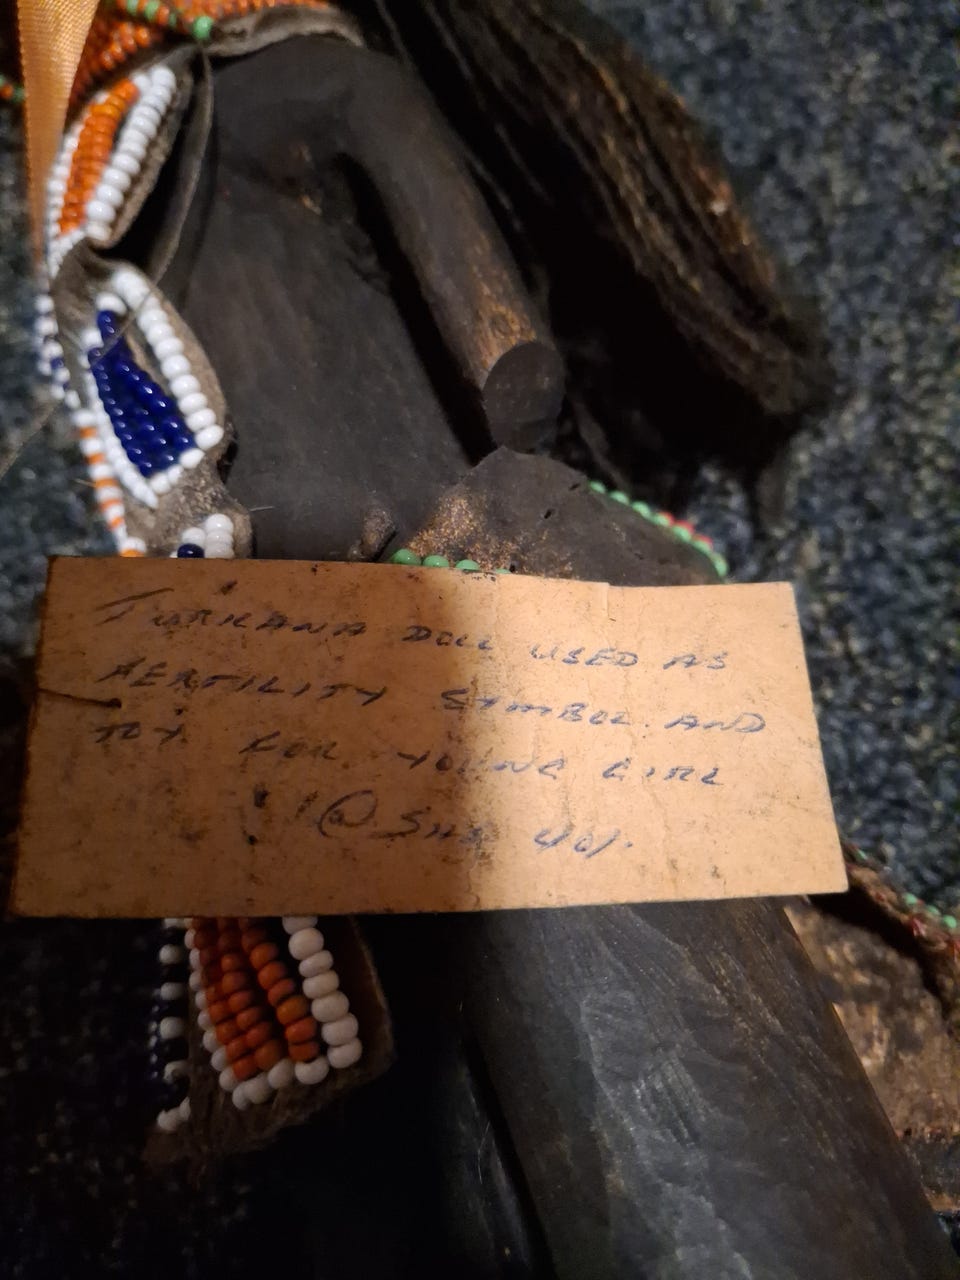 TURKANA DOLL USED AS
FERTILITY SYMBOL. AND
TOY FOR YOUNG GIRL
@ SHS 40/.